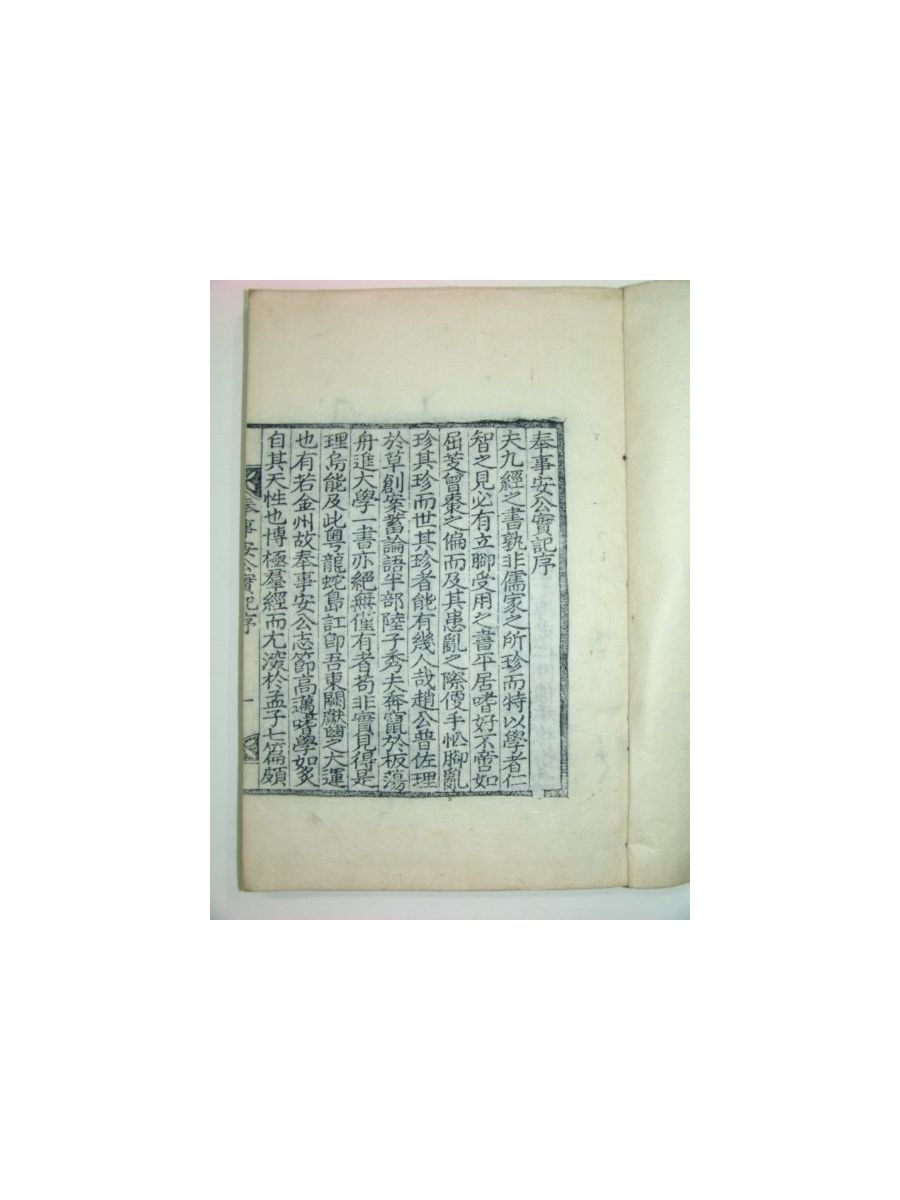 奉事安公實記序
夫九經之書孰非儒家之所珍而特以學者仁
智之見必有立脚受用之書平居嗜好不啻如
屈芰曾棗之偏而及其患亂之際使手忙脚亂
珍其珍而世其珍者能有幾人哉趙公普佐理
於草創案蓄論語半部陸子秀夫奔竄於板蕩
舟進大學一書亦絶無僅有者苟非實見得是
理烏能及此粤龍蛇島訌卽吾東闢獸鬪之大運
也有若金州故奉事安公志節高邁嗜學如炙
自其天性也博極羣經而尤深於孟子七篇頗
奉事安公實記序 一